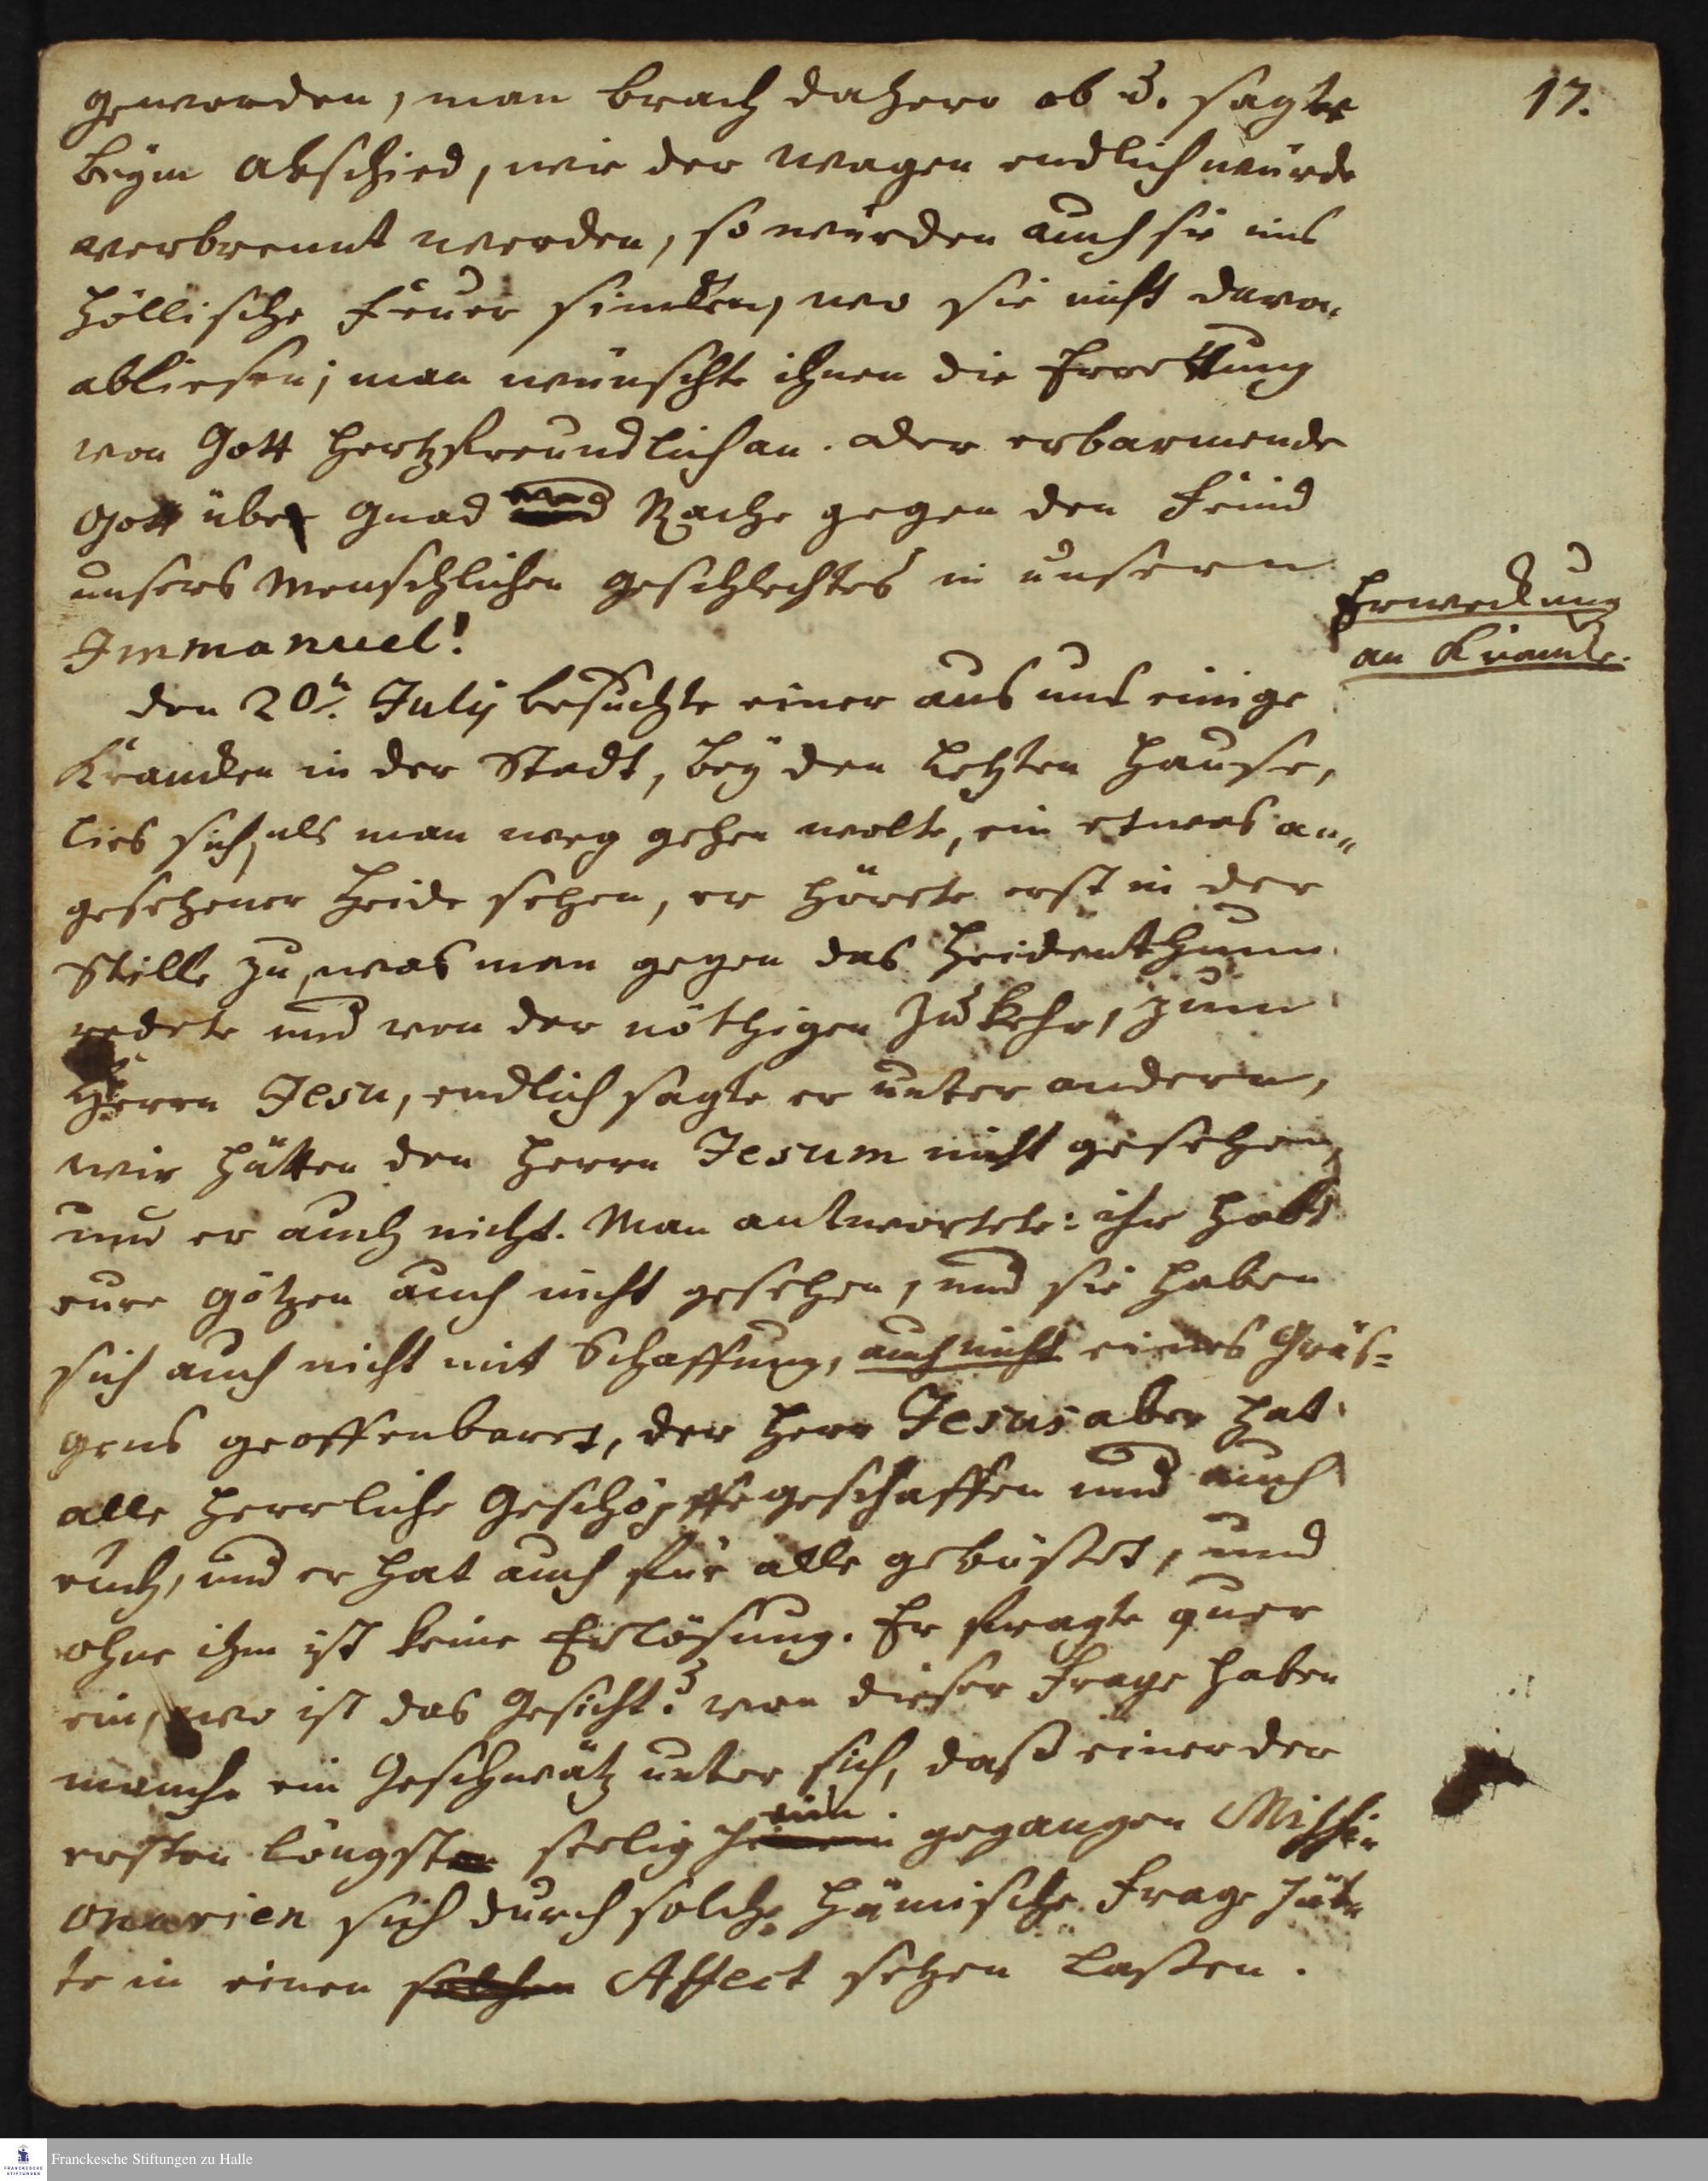 17.
geworden, man brach dahero ab u. sagte
beym Abschied, wie der Wagen endlich würde
verbrennt werden, so würden auch sie ins
höllische Feuer sincken, wo sie nicht davon
abließen; man wünschte ihnen die Errettung
von Gott hertzfreundlich an. Der erbarmende
Gott übe Gnad und Rache gegen den Feind
unsers Menschlichen Geschlechtes in unserm
Immanuel!
Erweckung
an Krancke.
den 20t. July besuchte einer aus uns einige
Krancken in der Stadt, bey den letzten Hause,
lies sich, als man weg gehen wolte, ein etwas an-
gesehener Heide sehen, er hörete erst in der
Stille zu, was man gegen das Heidenthum
redete und von der nöthigen Zukehr, zum
Herrn Jesu, endlich sagte er unter andern,
wir hätten den Herrn Jesum nicht gesehen,
und er auch nicht. Man antwortete: ihr habt
eure Götzen auch nicht gesehen, und sie haben
sich auch nicht mit Schaffung, auch nicht eines Gräs=
gens geoffenbaret, der Herr Jesus aber hat
alle herrliche Geschöpffe geschaffen und auch
euch, und er hat auch für alle gebüßet, und
ohne ihm ist keine Erlösung. Er fragte quer
ein, wo ist das Gesicht? von dieser Frage haben
manche ein Geschwätz unter sich, daß einer der
ersten längst seelig heim gegangen Missi-
onarien sich durch solche hämische Frage hät-
te in einen solchen Affect setzen laßen.
Franckesche Stiftungen zu Halle